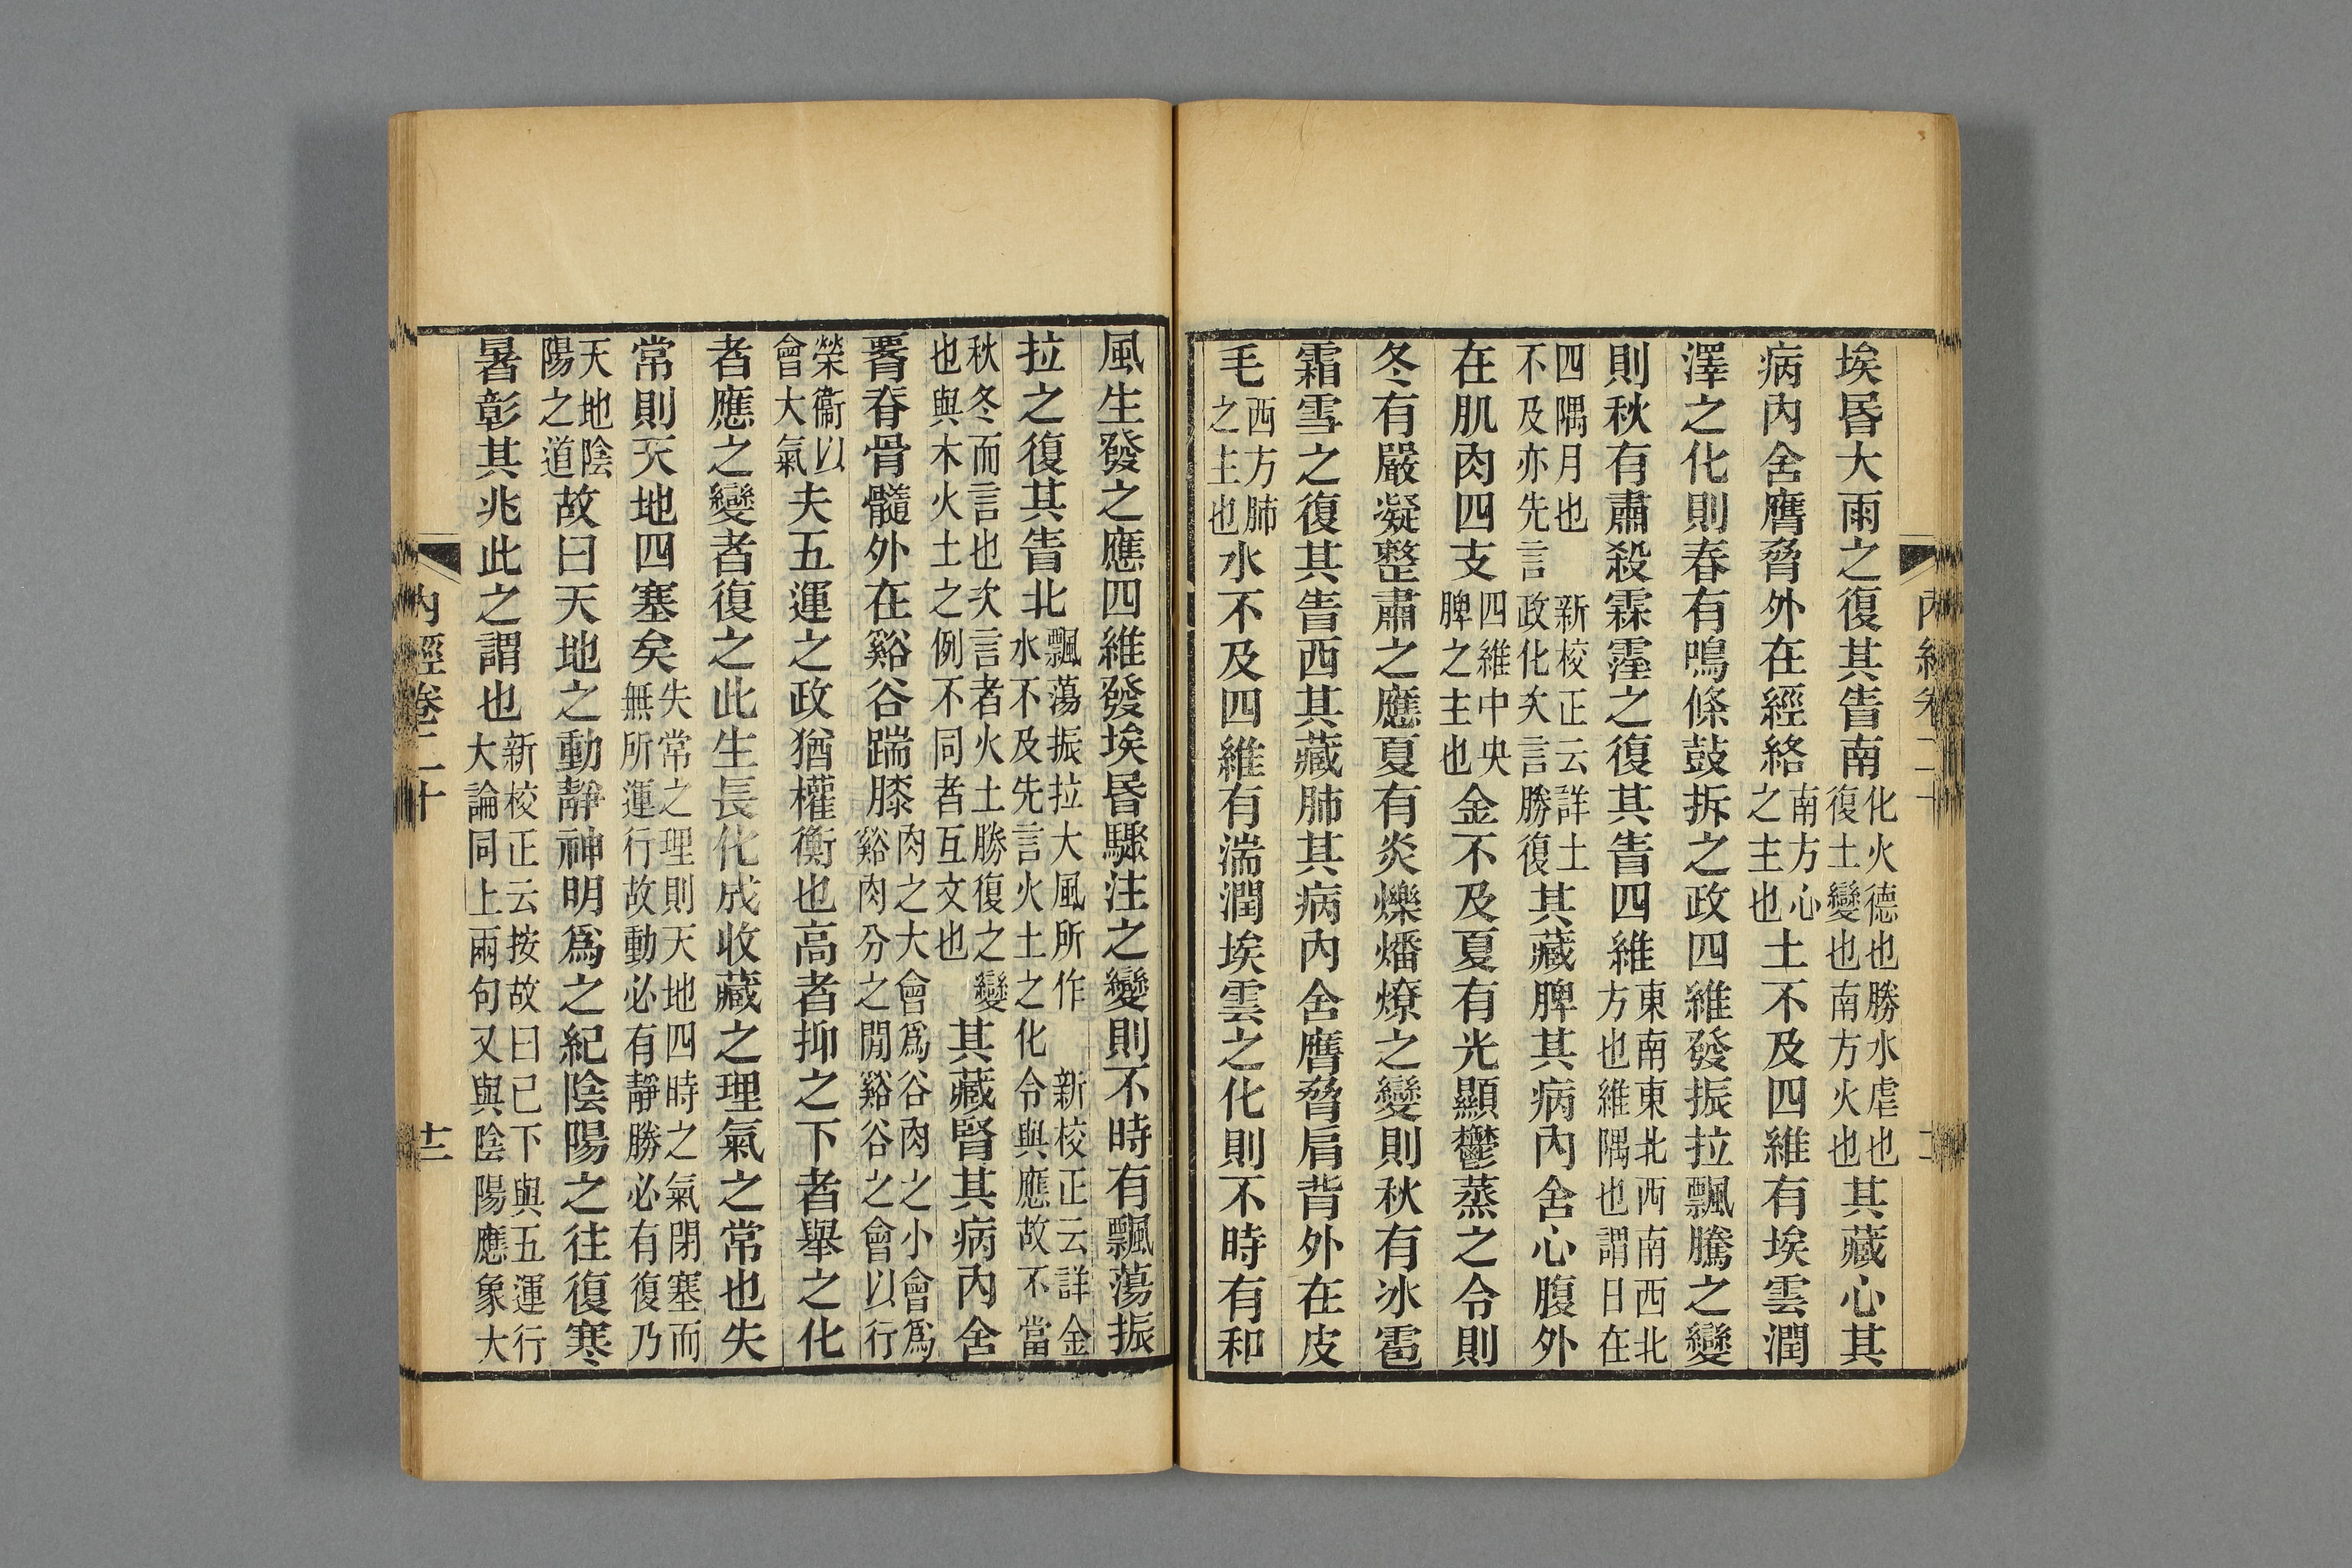 內經卷二十
十二
埃昬大雨之復其眚南化火德也勝水虐也復土變也南方火也其藏心其
病內舍膺脅外在經絡南方心之主也土不及四維有埃雲潤
澤之化則春有鳴條鼓拆之政四維發振拉飄騰之變
則秋有肅殺霖霪之復其眚四維東南東北西南西北方也維隅也謂日在
四隅月也 新校正云詳土不及亦先言政化次言勝復其藏脾其病內舍心腹外
在肌肉四支四維中央脾之主也金不及夏有光顯鬱蒸之令則
冬有嚴凝整肅之應夏有炎爍燔燎之變則秋有冰雹
霜雪之復其眚西其藏肺其病內舍膺脅肩背外在皮
毛西方肺之主也水不及四維有湍潤埃雲之化則不時有和
風生發之應四維發埃昬驟注之變則不時有飄蕩振
拉之復其眚北飄蕩振拉大風所作 新校正云詳金水不及先言火土之化令與應故不當
秋冬而言也次言者火土勝復之變也與木火土之例不同者互文也其藏腎其病內舍
腎脊骨髓外在谿谷踹膝肉之大會爲谷肉之小會爲谿肉分之閒谿谷之會以行
榮衞以會大氣夫五運之政猶權衡也高者抑之下者舉之化
者應之變者復之此生長化成收藏之理氣之常也失
常則天地四塞矣失常之理則天地四時之氣閉塞而無所運行故動必有靜勝必有復乃
天地陰陽之道故曰天地之動靜神明爲之紀陰陽之往復寒
暑彰其兆此之謂也新校正云按故曰已下與五運行大論同上兩句又與陰陽應象大
內經卷二十
十二